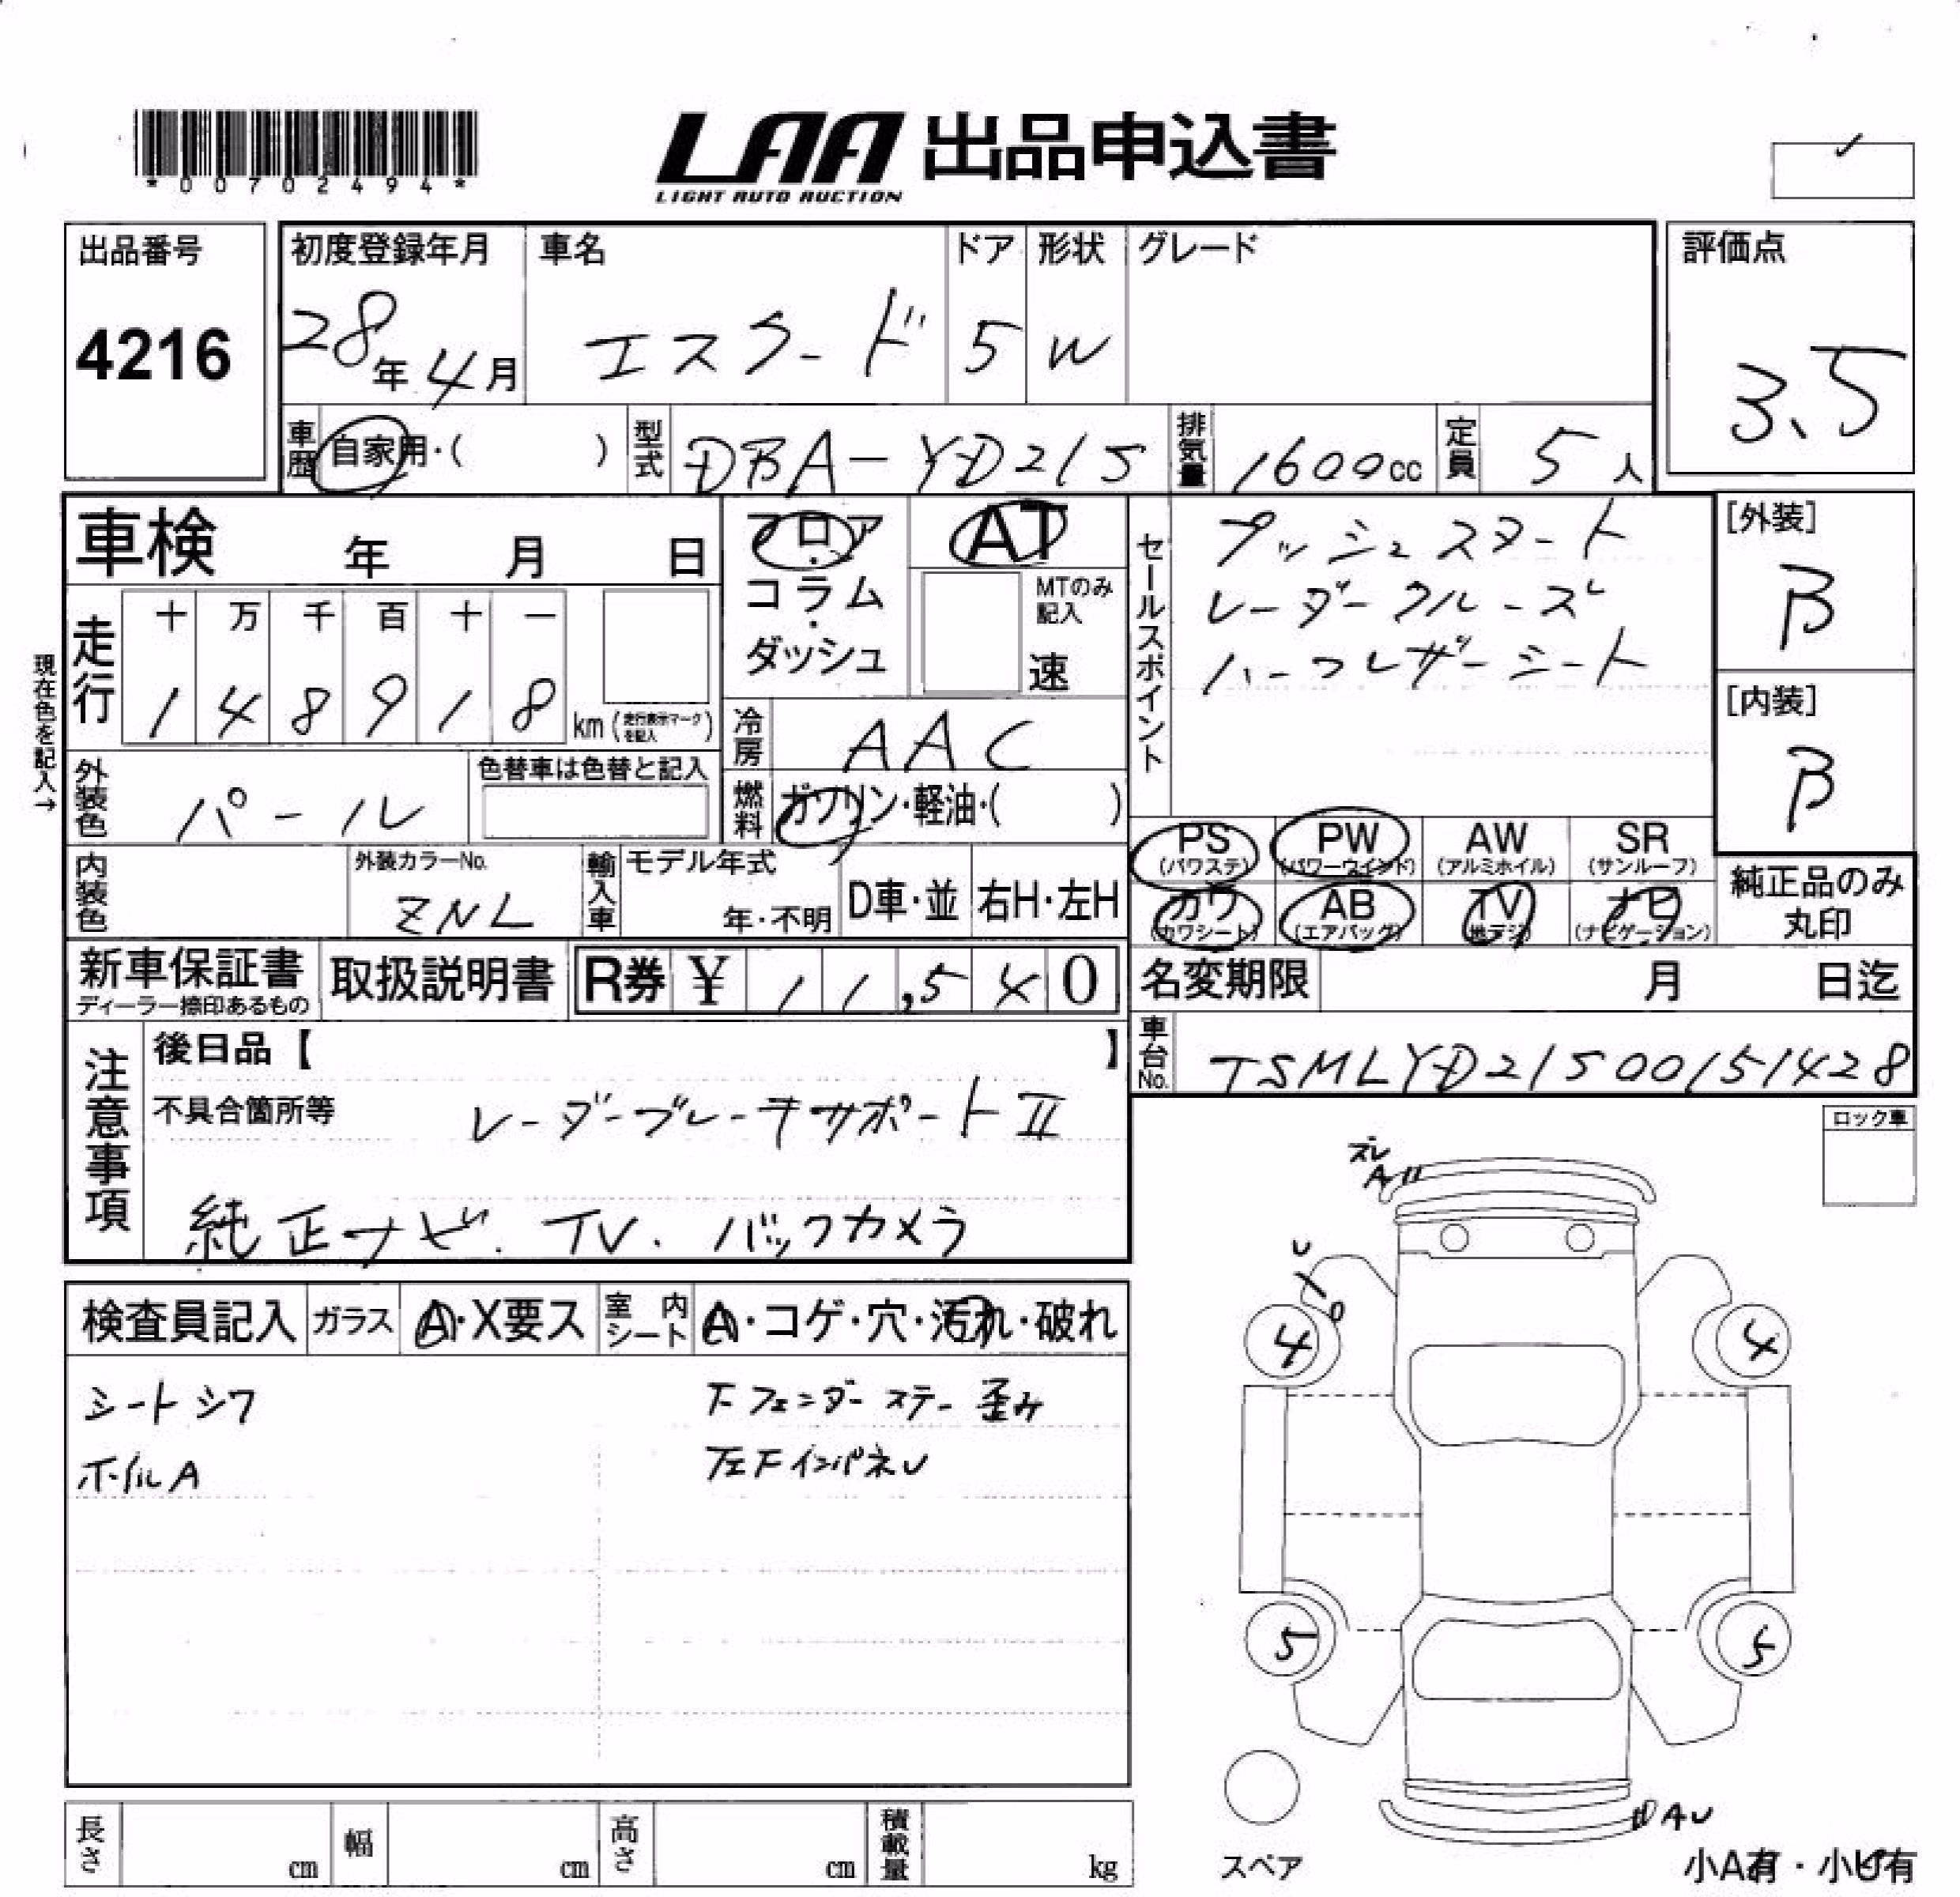 *00702494*
LAA 出品申込書
LIGHT AUTO AUCTION
出品番号
4216
初度登録年月
28年4月
車名
エスクード
ドア
5
形状
W
グレード
評価点
3.5
車歴
自家用・( )
型式
DBA-YD21S
排気量
1600cc
定員
5人
車検 年 月 日
フロア・コラム・ダッシュ
AT
MTのみ記入
速
セールスポイント
プッシュスタート
レーダークルーズ
ハーフレザーシート
[外装]
B
[内装]
B
現在色を記入→
走行
十 万 千 百 十 一
1 4 8 9 1 8 km (走行表示マークを記入)
冷房
AAC
外装色
パール
色替車は色替と記入
燃料
ガソリン・軽油・( )
PS (パワステ)
PW (パワーウインド)
AW (アルミホイル)
SR (サンルーフ)
カワ (カワシート)
AB (エアバッグ)
TV (地デジ)
ナビ (ナビゲーション)
純正品のみ丸印
内装色
外装カラーNo.
ZNL
輸入車
モデル年式
年・不明
D車・並
右H・左H
新車保証書
ディーラー捺印あるもの
取扱説明書
R券 ¥ 11,540
名変期限 月 日迄
車台No.
TSMLYD21S00151428
注意事項
後日品【 】
不具合箇所等
レーダーブレーキサポートⅡ
純正ナビ. TV. バックカメラ
ロック車
検査員記入
ガラス
A・X要ス
室内シート
A・コゲ・穴・汚れ・破れ
シートシワ
ホイルA
Fフェンダーステー歪み
左FインパネU
ズレ
A
U
4
4
5
5
AU
スペア
小A有・小U有
長さ cm
幅 cm
高さ cm
積載量 kg